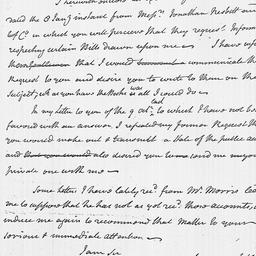 received the 8 Inst instant from Mess.rs Jonathan Nesbitt and
Co. in which you will perceive that they request Inform
respecting certain Bills drawn upon me I have
them that I would communicate the
Request to you and desire you to write to them on the
Subject, which as you have the Books is all I could do
In my Letter to you of the 9 Oct.r last to which I have not be
favored with an answer I repeated my former Request tha
you would make out & transmit a State of the public ac
and also desired you to send me your
private one with me
Some Letters I have lately rec.d from Mr. Morris lea
me to suppose that he has not as yet rec.d those accounts,
induce me again to recommend that Matter to your
serious & immediate attention
I am Sir